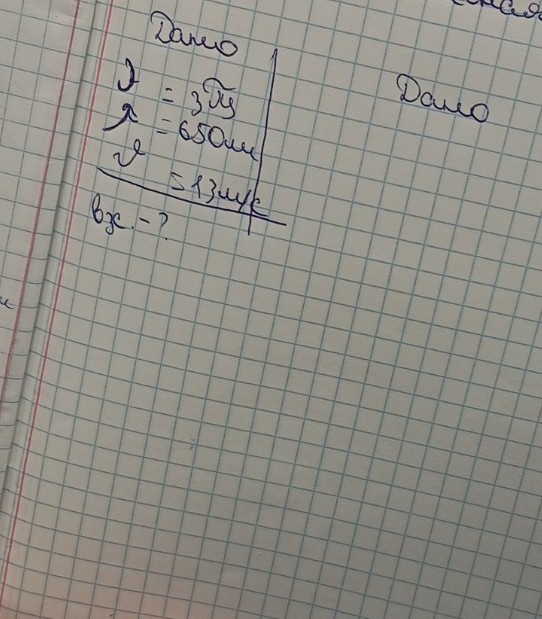 Дано
ν = 3 Гц
λ = 650 м
v = 13 м/с
вх. - ?
Дано